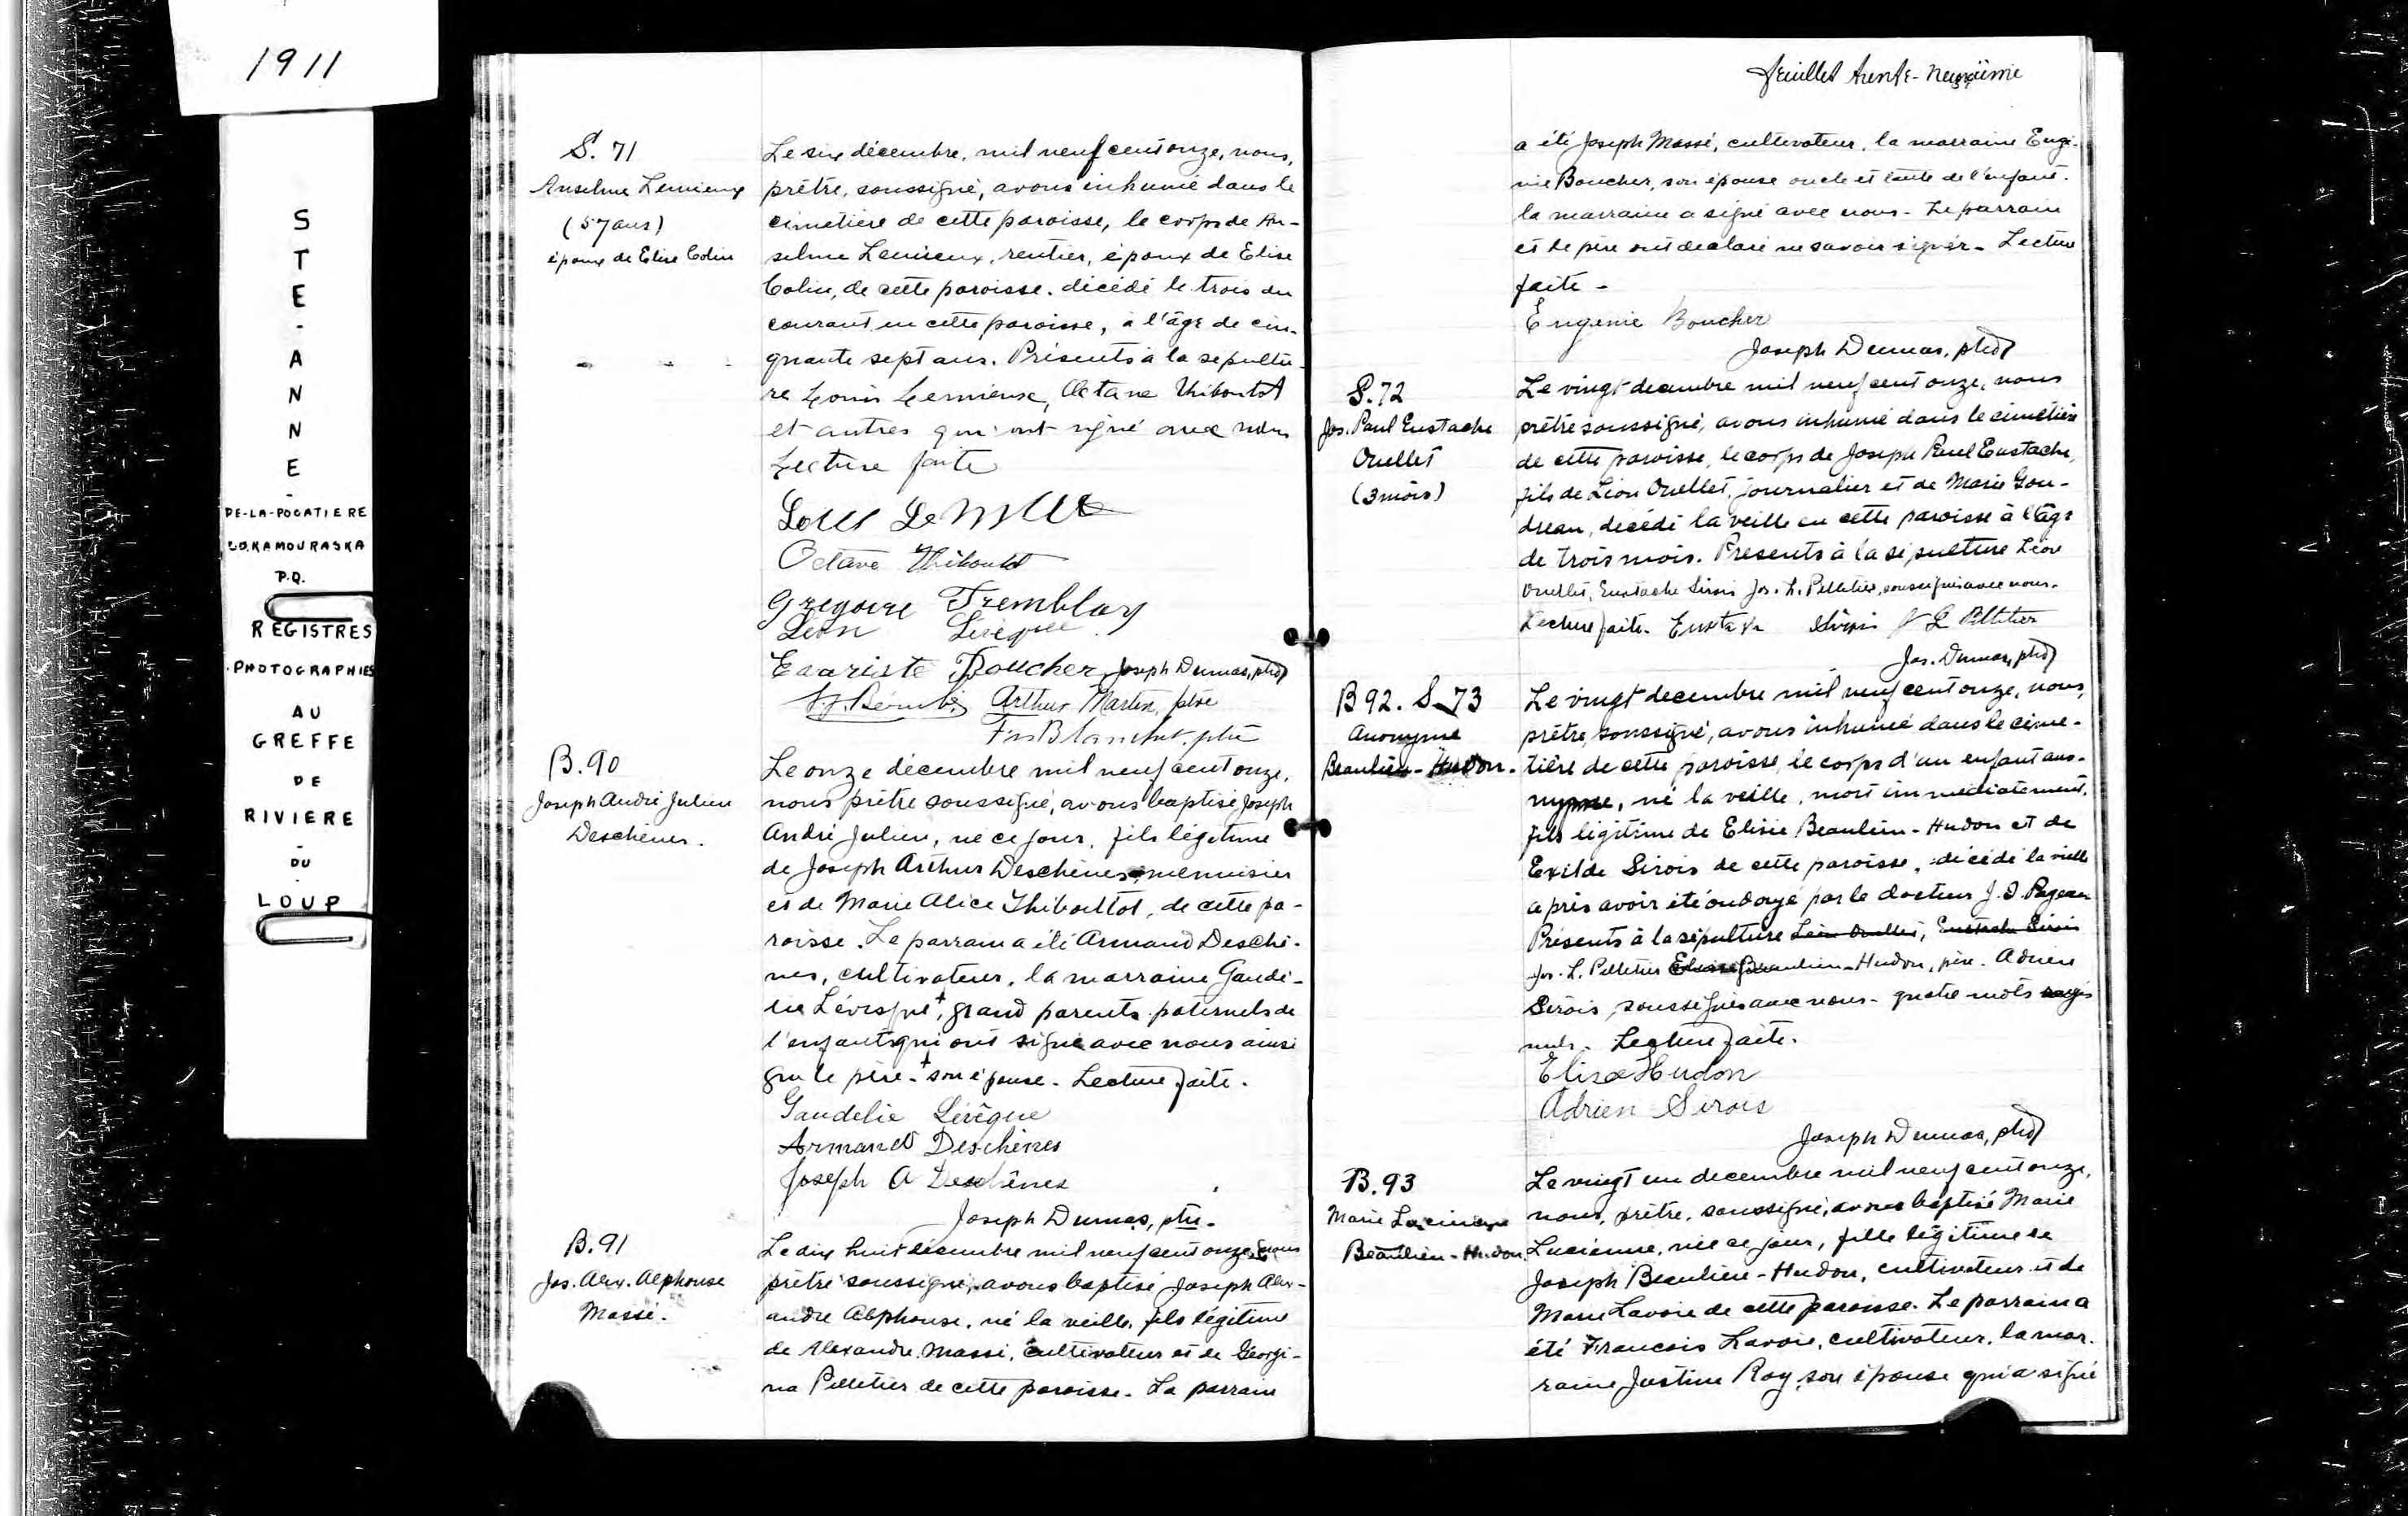 1911
STE-ANNE-
DE-LA-POCATIERE
CO. KAMOURASKA
P.Q.
REGISTRES
PHOTOGRAPHIES
AU
GREFFE
DE
RIVIERE
-
DU
-
LOUP
S. 71
Anselme Lemieux
(57 ans)
époux de Elise Colin
Le six décembre, mil neuf cent onze, nous,
prêtre, soussigné, avons inhumé dans le
cimetière de cette paroisse, le corps de An-
selme Lemieux, rentier, époux de Elise
Colin, de cette paroisse. décédé le trois du
courant en cette paroisse, à l'âge de cin-
quante sept ans. Présents à la sépultu-
re Louis Lemieux, Octave Thiboutot
et autres qui ont signé avec nous
Lecture faite
Octave Thiboutot
Gregoire Tremblay
Léon Lévêque
Evariste Boucher Joseph Dumas, ptre
Arthur Martin, ptre
B.90
Joseph André Julien
Deschènes.
Le onze décembre mil neuf cent onze,
nous prêtre soussigné, avons baptisé Joseph
André Julien, né ce jour, fils légitime
de Joseph Arthur Deschènes menuisier
et de Marie Alice Thiboutot, de cette pa-
roisse. Le parrain a été Armand Deschè-
nes, cultivateur, la marraine Gaudé-
lie Lévesque +, grand parents paternels de
l'enfant qui ont signé avec nous ainsi
que le père - + son épouse - Lecture faite.
Gaudelie Lévêque
Armand Deschènes
Joseph A Deschênes
Joseph Dumas, ptre.
B.91
Jos. Alex. Alphonse
Massé.
Le dix huit décembre mil neuf cent onze, nous
prêtre soussigné, avons baptisé Joseph Alex-
andre Alphonse, né la veille, fils légitime
de Alexandre Massé, cultivateur et de Georgi-
na Pelletier de cette paroisse. Le parrain
feuillet trente-neuvième
a été Joseph Massé, cultivateur, la marraine Eugé-
nie Boucher, son épouse oncle et tante de l'enfant.
la marraine a signé avec nous - Le parrain
et le père ont déclaré ne savoir signer - Lecture
faite -
Eugenie Boucher
Joseph Dumas, ptre
S.72
Jos. Paul Eustache
Ouellet
(3 mois)
Le vingt decembre mil neuf cent onze, nous
prêtre soussigné, avons inhumé dans le cimetière
de cette paroisse, le corps de Joseph Paul Eustache,
fils de Léon Ouellet, journalier et de Marie Gou-
dreau, décédé la veille en cette paroisse à l'âge
de trois mois. Présents à la sépulture Léon
Ouellet, Eustache Sirois Jos. L. Pelletier, soussignés avec nous.
Lecture faite. Sirois J L Pelletier
Jos. Dumas, ptre
B 92. S 73
Anonyme
Beaulieu - Hudon.
Le vingt decembre mil neuf cent onze, nous,
prêtre, soussigné, avons inhumé dans le cime-
tière de cette paroisse, le corps d'un enfant ano-
nyme, né la veille, mort immediatement,
fils légitime de Elisée Beaulieu - Hudon et de
Exilda Sirois de cette paroisse, décédé la veille
après avoir été ondoyé par le docteur J. D. Pageau
Présents à la sépulture Léon Ouellet, Eustache Sirois
Jos. L. Pelletier Elisée Beaulieu - Hudon, père. Adrien
Sirois, soussignés avec nous - quatre mots rayés
nuls. Lecture faite.
Elisé Hudon
Adrien Sirois
Joseph Dumas, ptre
B.93
Marie Lucienne
Beaulieu - Hudon.
Le vingt un decembre mil neuf cent onze,
nous, prêtre, soussigné, avons baptisé Marie
Lucienne, née ce jour, fille légitime de
Joseph Beaulieu - Hudon, cultivateur et de
Marie Lavoie de cette paroisse. Le parrain a
été Francois Lavoie, cultivateur, la mar-
raine Justine Roy, son épouse qui a signé